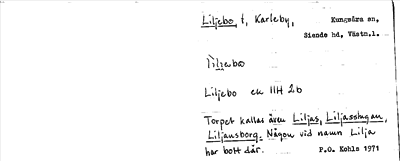 Liljebo, t, Karleby, Kungsåra sn,
Siende hd, Västm.l.
Liljebo ek 11H 2b
Torpet kallas även Liljas, Liljasstugan,
Liljansborg. Någon vid namn Lilja
har bott där. P.O. Kohls 1971